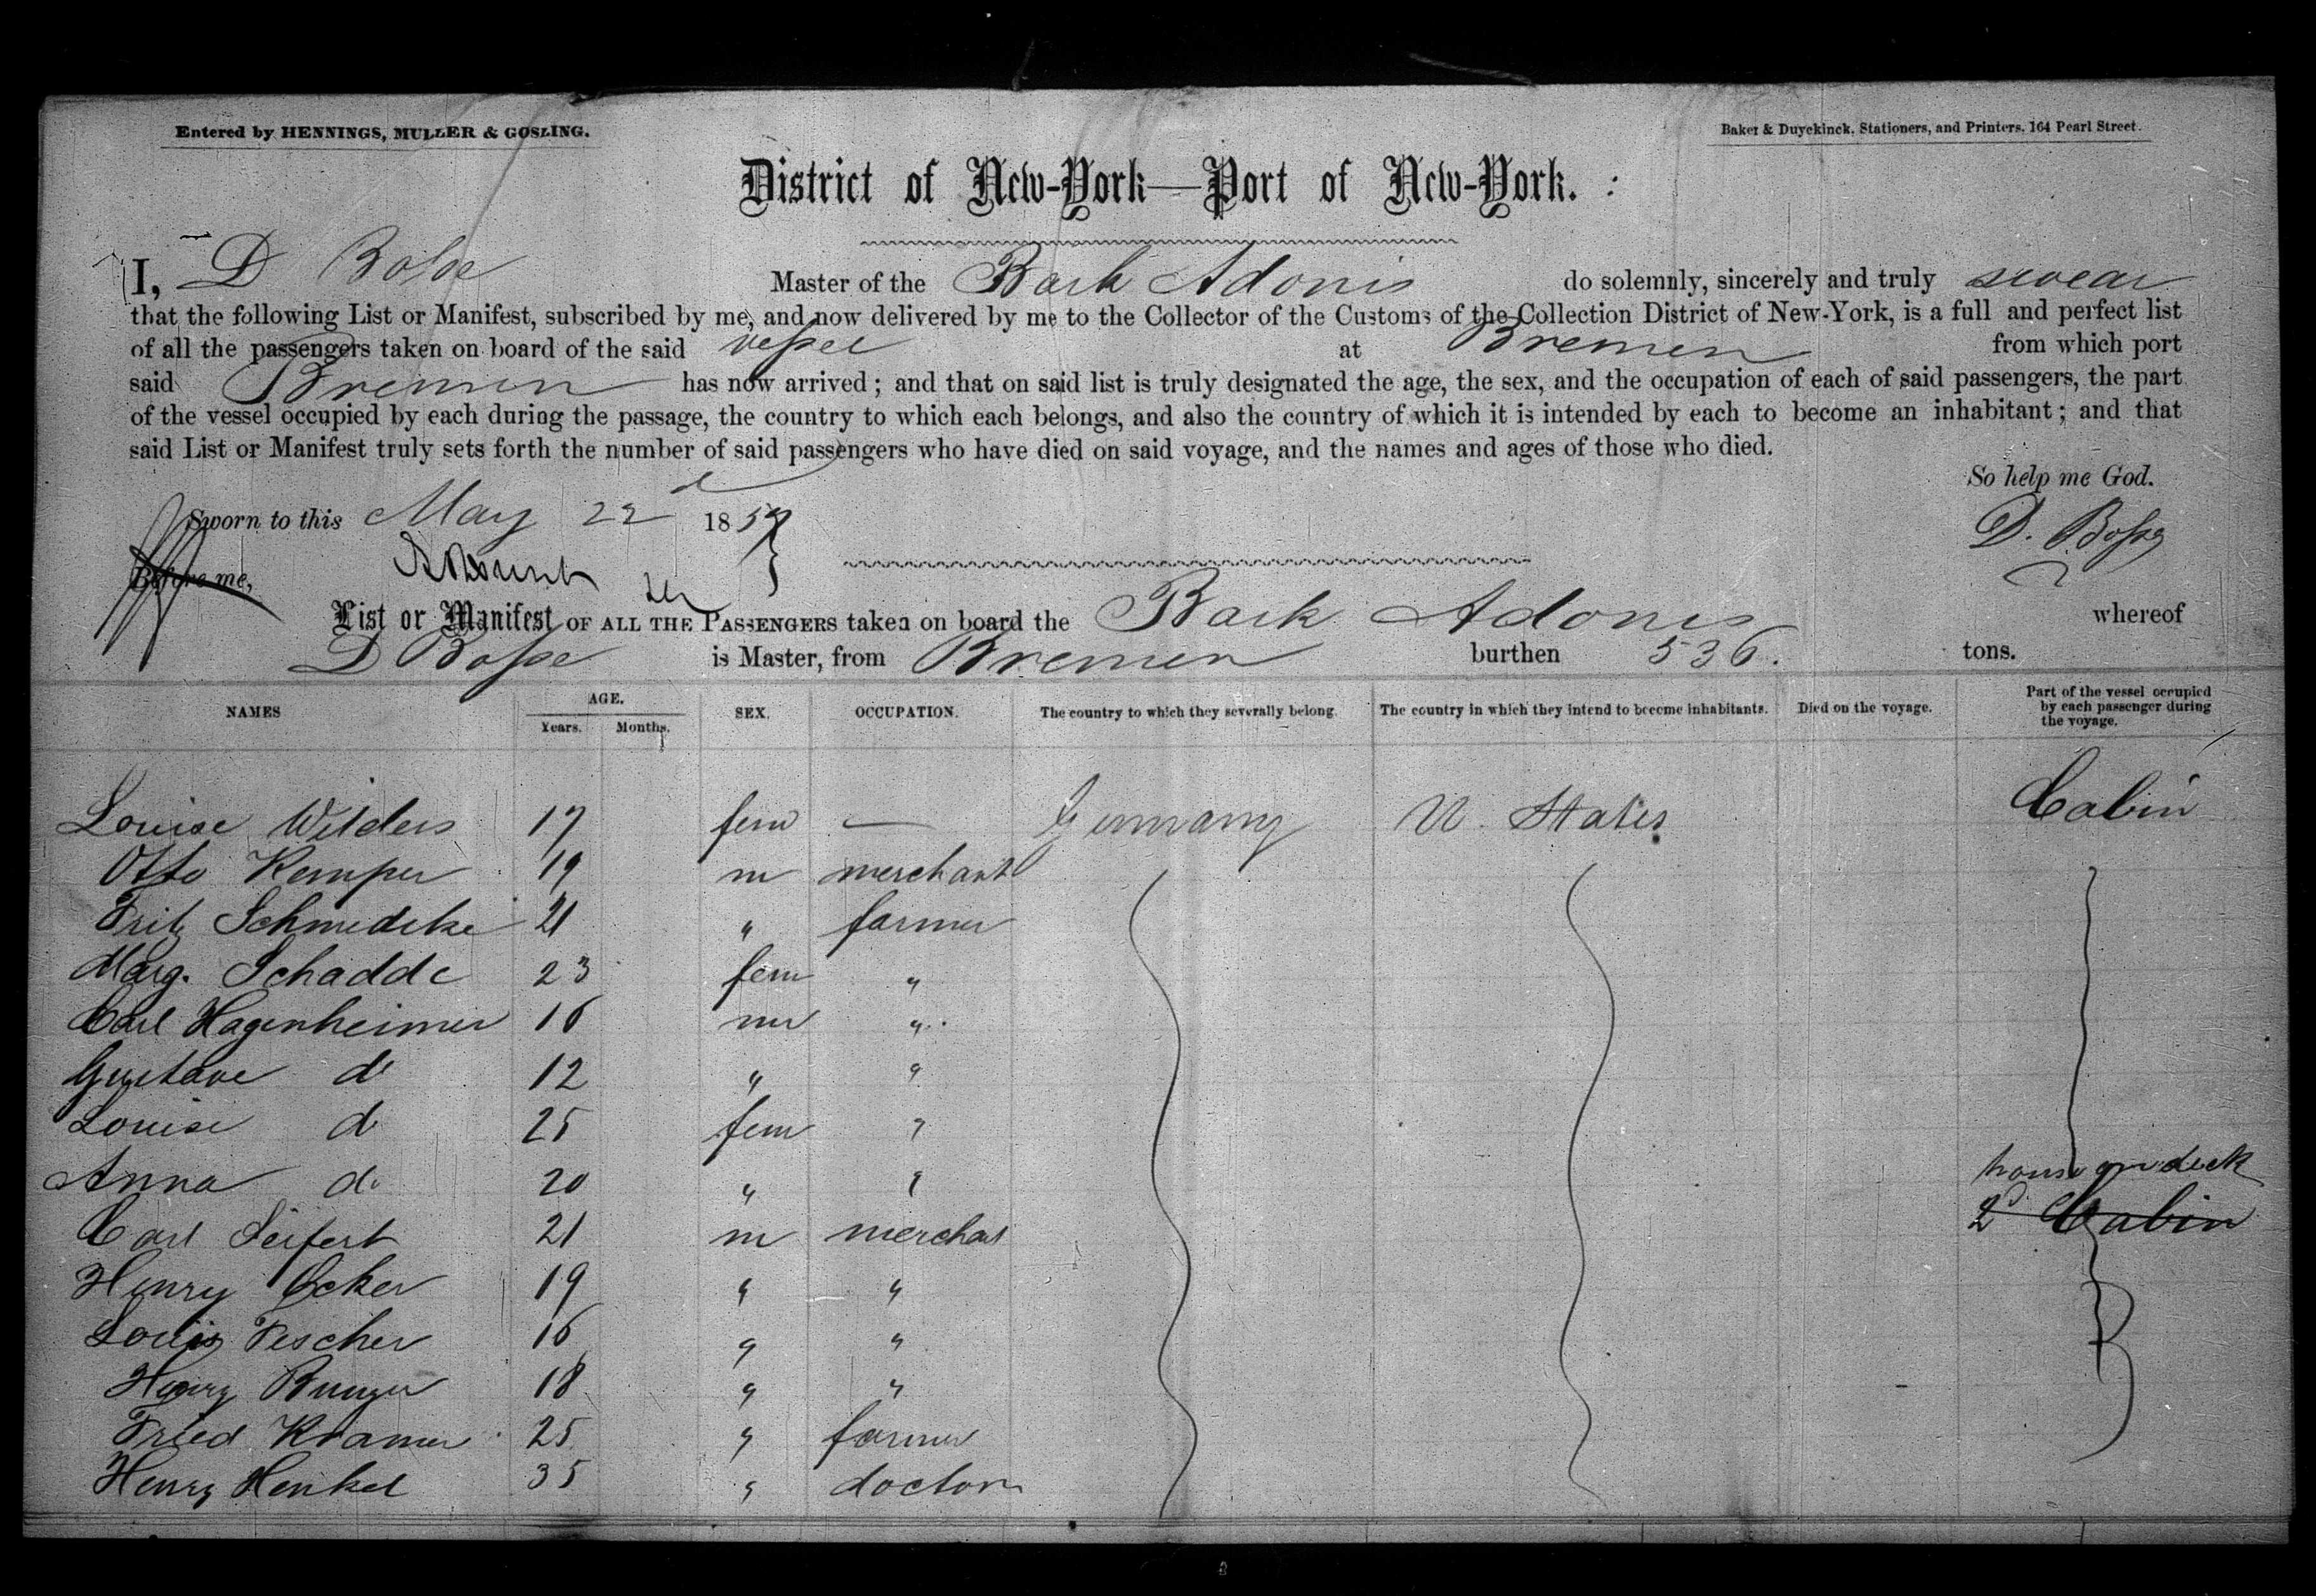 Entered by HENNINGS, MULLER & GOSLING.
Baker & Duyckinck, Stationers, and Printers, 164 Pearl Street.
District of New-York—Port of New-York.
I, D Bosse Master of the Bark Adonis do solemnly, sincerely and truly swear
that the following List or Manifest, subscribed by me, and now delivered by me to the Collector of the Customs of the Collection District of New-York, is a full and perfect list
of all the passengers taken on board of the said vessel at Bremen from which port
said Bremen has now arrived; and that on said list is truly designated the age, the sex, and the occupation of each of said passengers, the part
of the vessel occupied by each during the passage, the country to which each belongs, and also the country of which it is intended by each to become an inhabitant; and that
said List or Manifest truly sets forth the number of said passengers who have died on said voyage, and the names and ages of those who died.
So help me God.
Sworn to this May 22d 1857
D. Bosse
Before me,
List or Manifest OF ALL THE PASSENGERS taken on board the Bark Adonis whereof
D Bosse is Master, from Bremen burthen 536. tons.
NAMES AGE. Years. Months. SEX. OCCUPATION. The country to which they severally belong. The country in which they intend to become inhabitants. Died on the voyage. Part of the vessel occupied by each passenger during the voyage.
Louise Wilders 17 fem — Germany U. States Cabin
Otto Kemper 19 m merchant
Fritz Schmedeke 21 " farmer
Marg. Schadde 23 fem "
Carl Hagenheimer 16 m "
Gustave do 12 " "
Louise do 25 fem "
Anna do 20 " " house on deck
Carl Seifert 21 m merchant 2d Cabin
Henry Ocker 19 " "
Louis Fescher 16 " "
Henry 18 " "
Fried Kramer 25 " farmer
Henry Henkel 35 " doctor